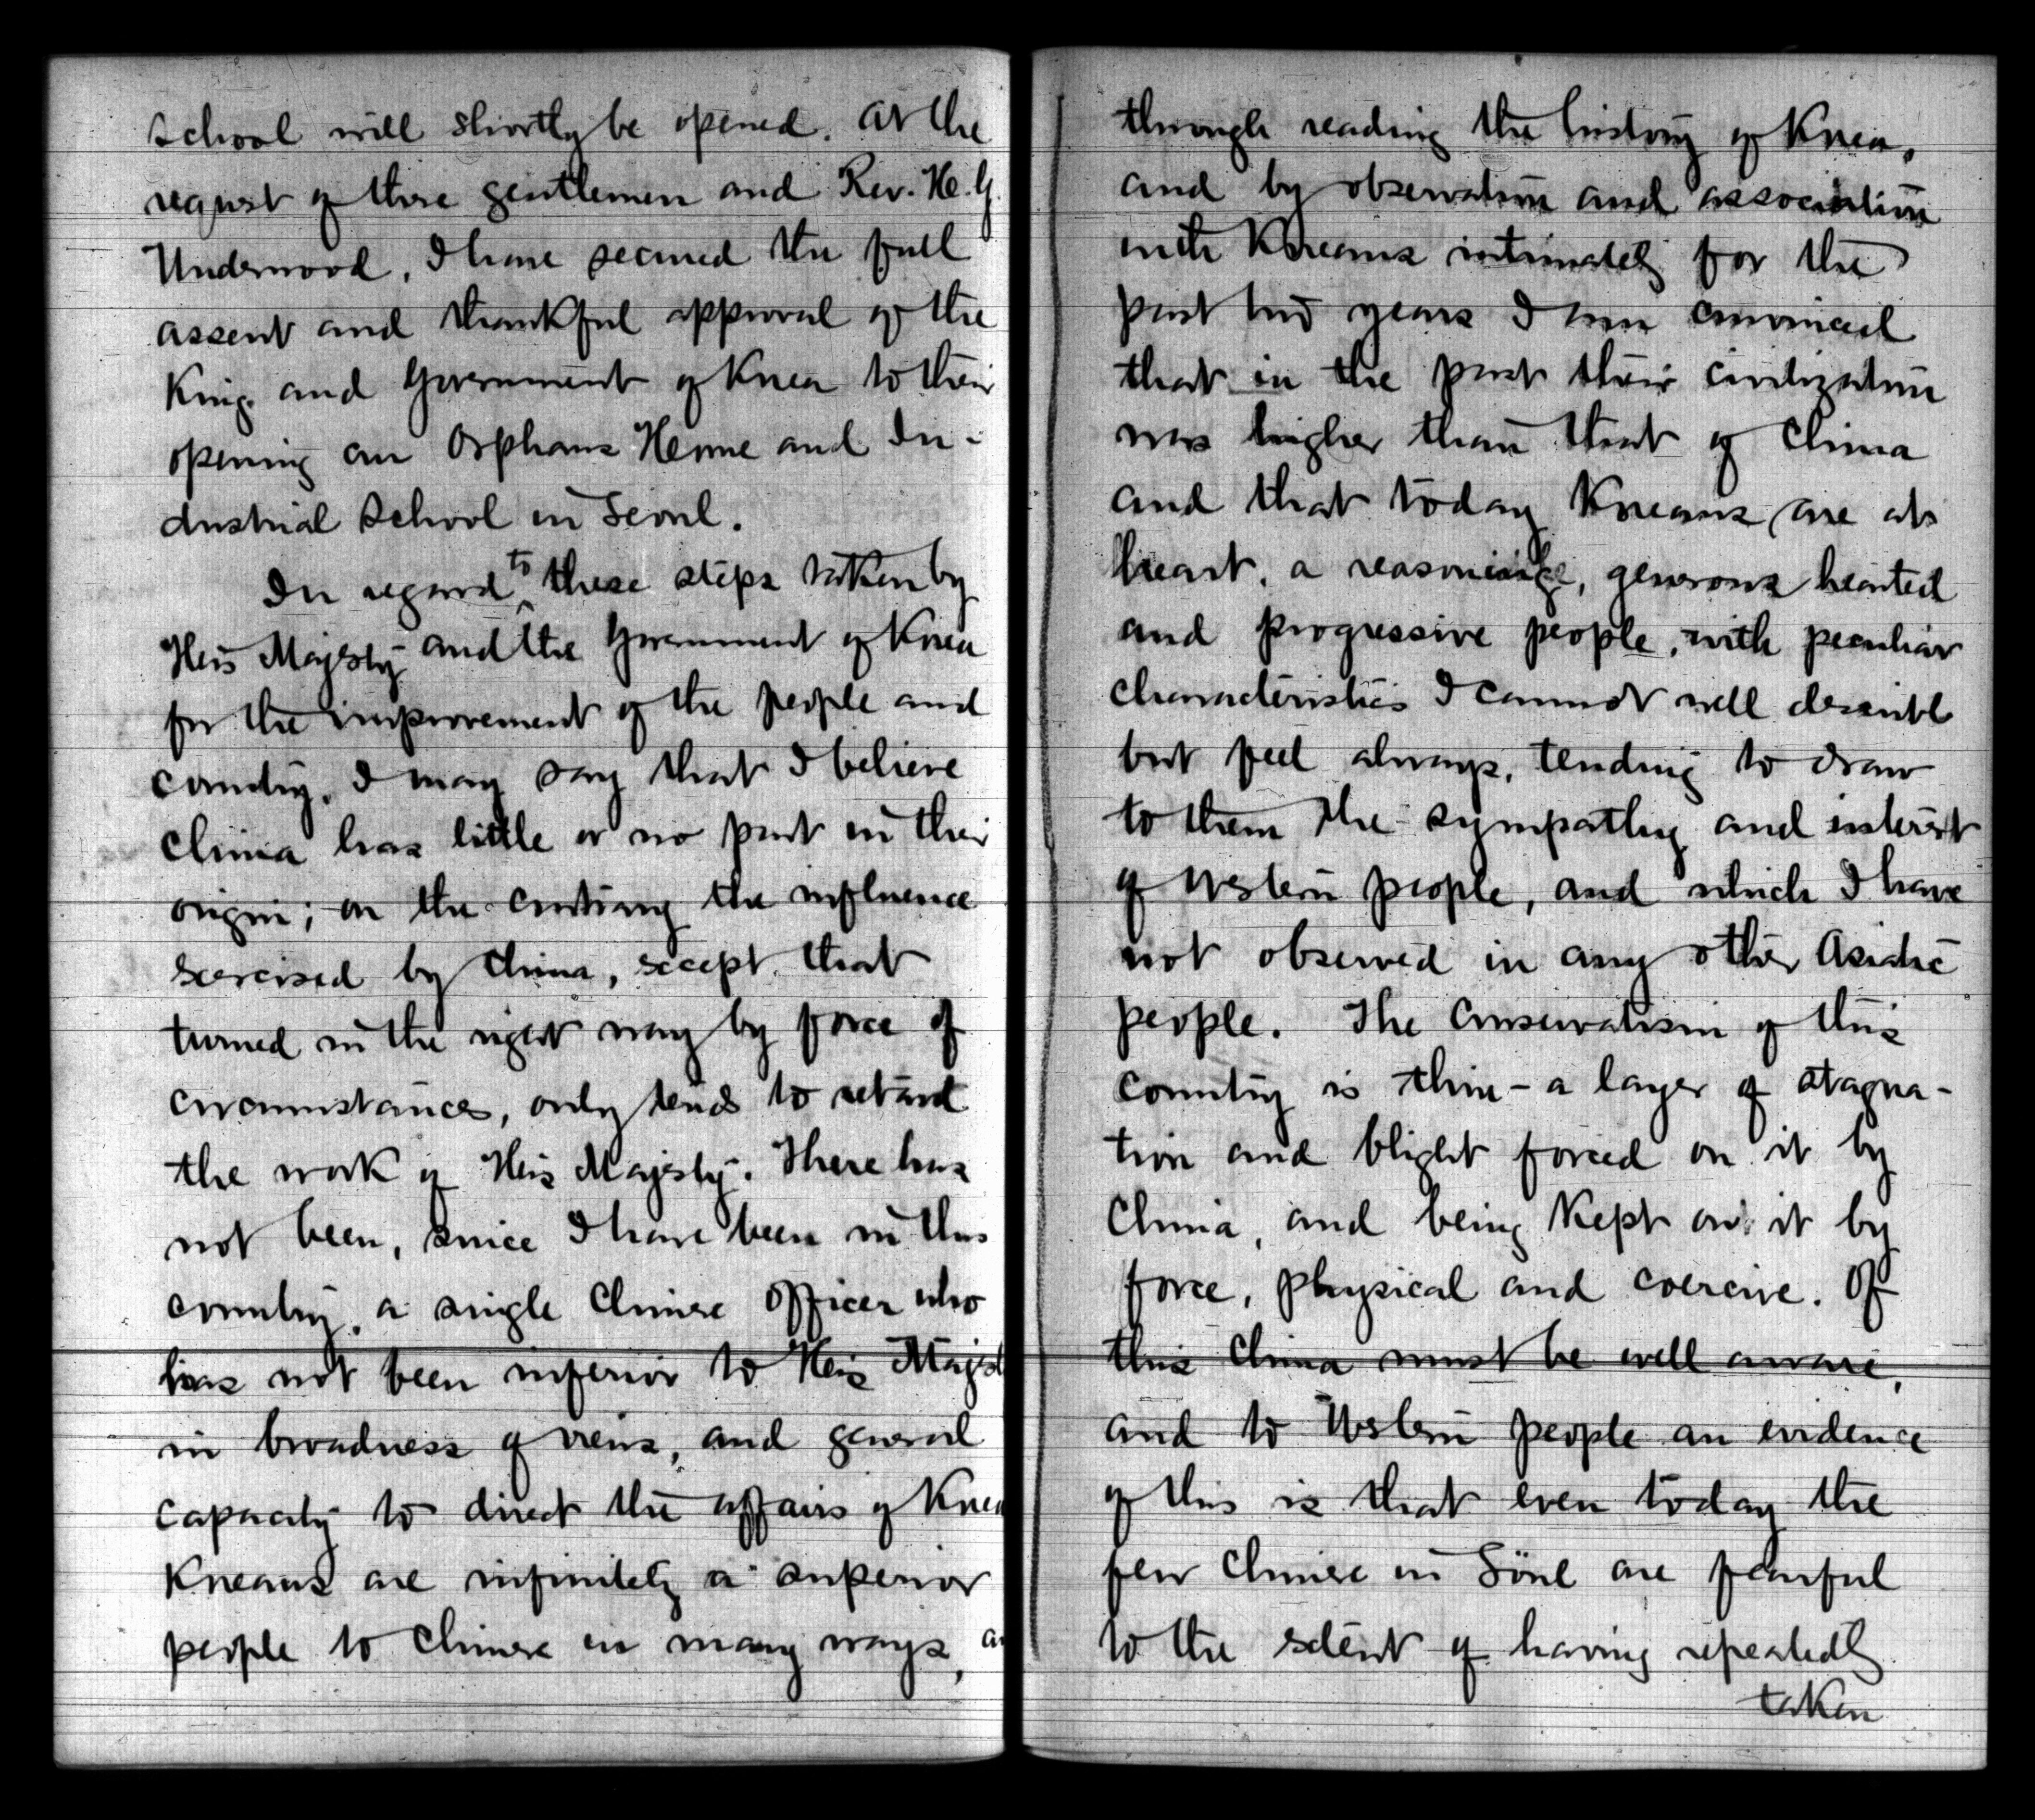 school will shortly be opened. At the
request of these gentlemen and Rev. H. G.
Underwood, I have secured the full
assent and thankful approval of the
King and Government of Korea to their
opening an Orphans Home and In-
dustrial School in Seoul.
In regard to these steps taken by
His Majesty and the Government of Korea
for the improvement of the people and
country, I may say that I believe
China has little or no part in their
origin; on the contrary the influence
exercised by China, except that
turned in the right way by force of
circumstances, only tends to retard
the work of His Majesty. There has
not been, since I have been in this
country, a single Chinese officer who
has not been inferior to His Majest
in broadness of views, and general
capacity to direct the affairs of Korea
Koreans are infinitely a superior
people to Chinese in many ways, an
through reading the history of Korea,
and by observation and association
with Koreans intimately for the
past two years I am convinced
that in the past their civilization
was higher than that of China
and that today Koreans are at
heart, a reasoning, generous hearted
and progressive people, with peculiar
characteristics I cannot well describe
but feel always, tending to draw
to them the sympathy and interest
of Western people, and which I have
not observed in any other Asiatic
people. The conservatism of this
country is thin - a layer of stagna-
tion and blight forced on it by
China, and being kept on it by
force, physical and coercive. Of
this China must be well aware,
and to Western people an evidence
of this is that even today the
few Chinese in Söul are fearful
to the extent of having repeatedly
taken